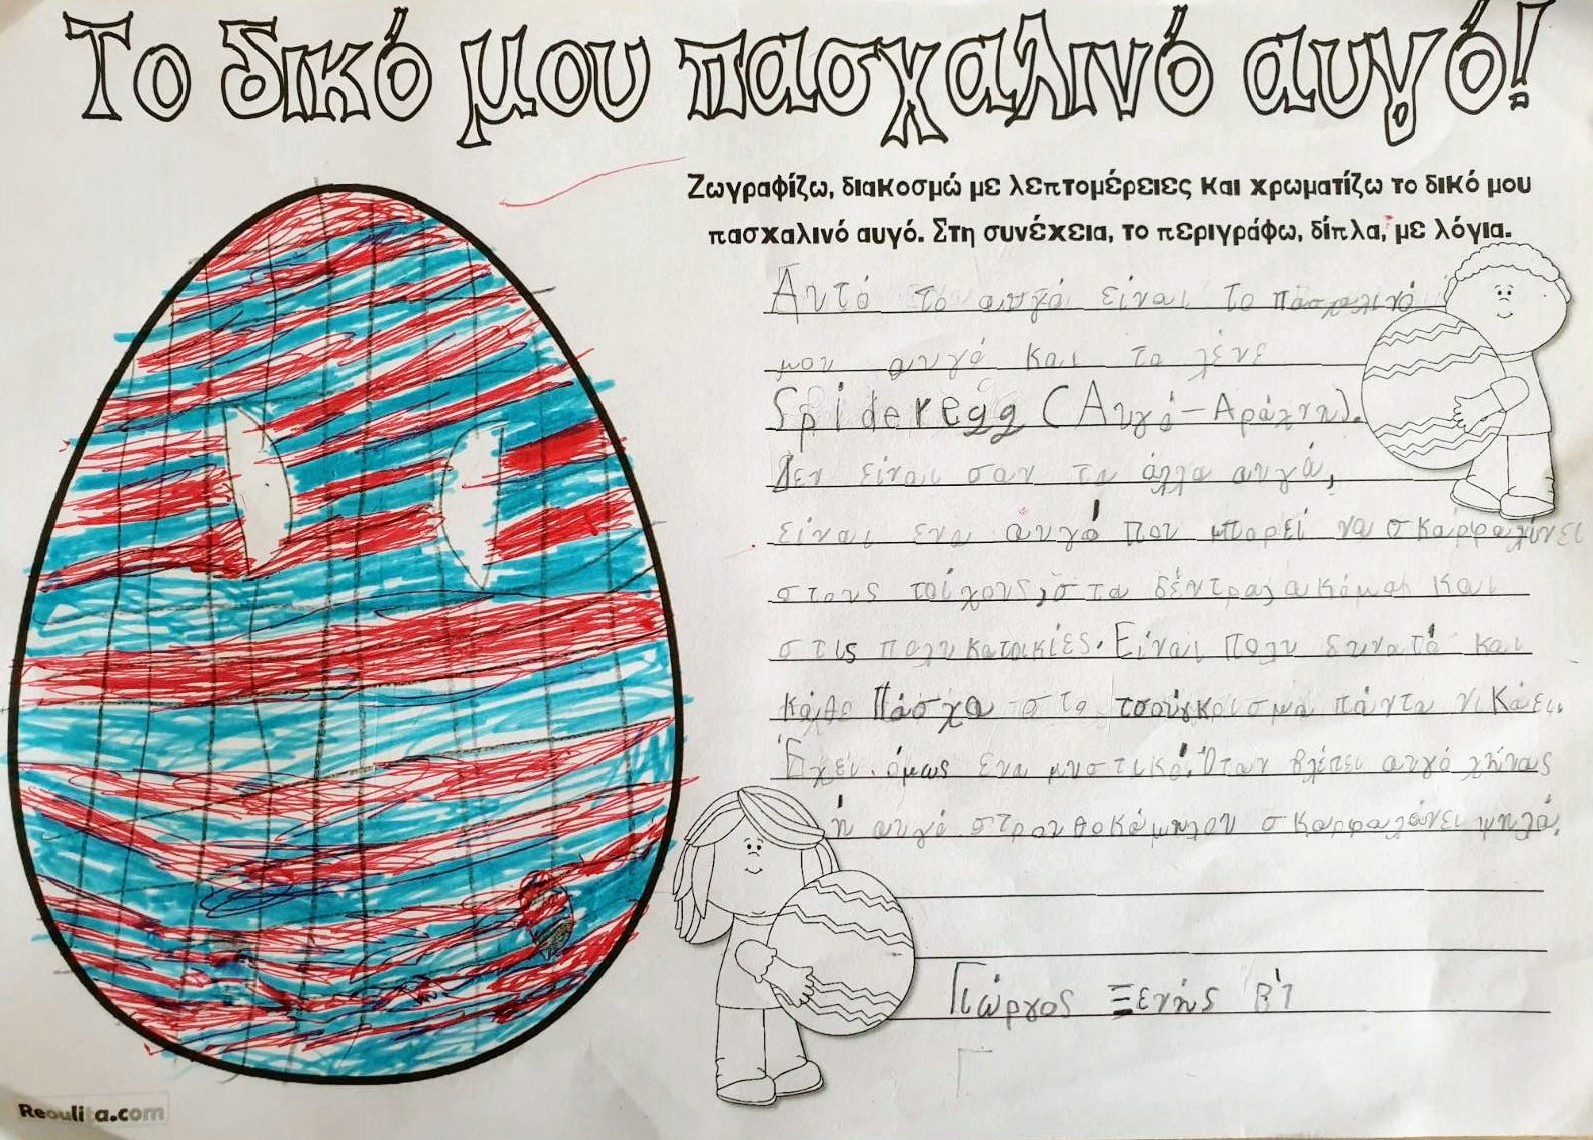 Το δικό μου πασχαλινό αυγό!
Ζωγραφίζω, διακοσμώ με λεπτομέρειες και χρωματίζω το δικό μου
πασχαλινό αυγό. Στη συνέχεια, το περιγράφω, δίπλα, με λόγια.
Αυτό το αυγό είναι το πασχαλινό
μου αυγό και το λένε
Spideregg (Αυγό-Αράχνη).
Δεν είναι σαν τα άλλα αυγά,
είναι ενα αυγό που μπορεί να σκαρφαλώνει
στους τοίχους, στα δέντρα, ακόμα και
στις πολυκατοικίες. Είναι πολυ δυνατό και
κάθε Πάσχα στο τσούγκρισμα πάντα νικάει.
Έχει όμως ενα μυστικό. Όταν βλέπει αυγό χήνας
ή αυγό στρουθοκάμηλου σκαρφαλώνει ψηλά.
Γιώργος Ξενής Β'1
Reoulita.com